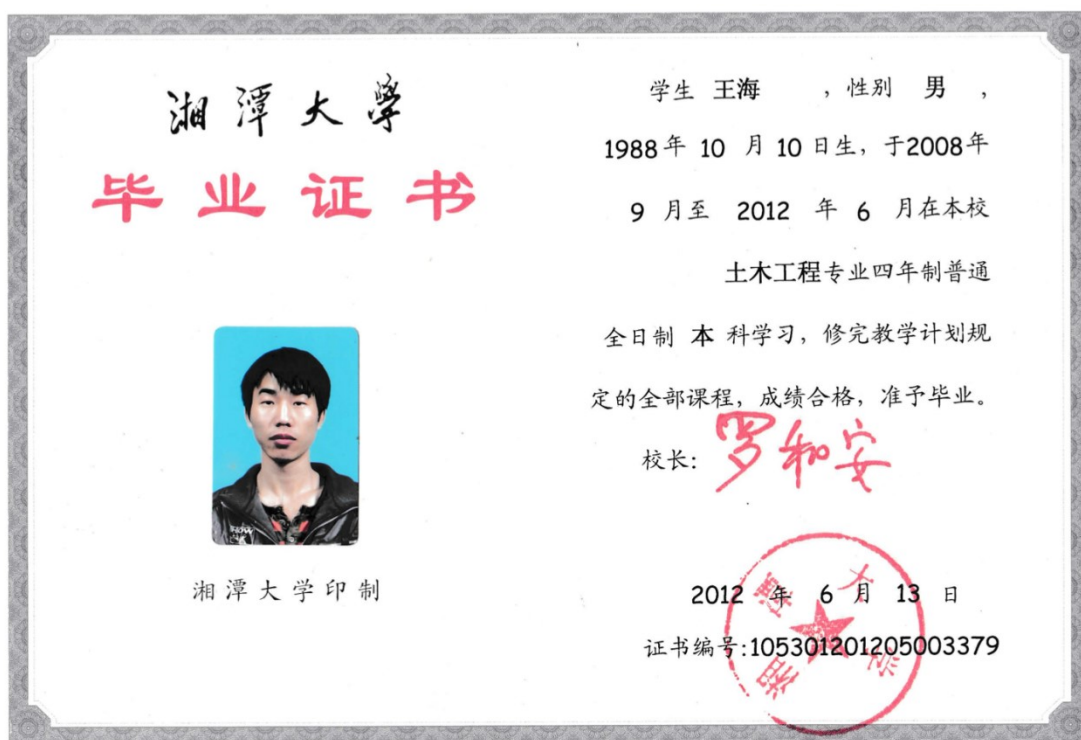 湘潭大学
毕业证书
湘潭大学印制
学生 王海 ，性别 男 ，
1988年 10 月 10 日生，于2008年
9 月至 2012 年 6 月在本校
土木工程专业四年制普通
全日制 本 科学习，修完教学计划规
定的全部课程，成绩合格，准予毕业。
校长：罗和安
2012 年 6 月 13 日
证书编号:105301201205003379
湘潭大学